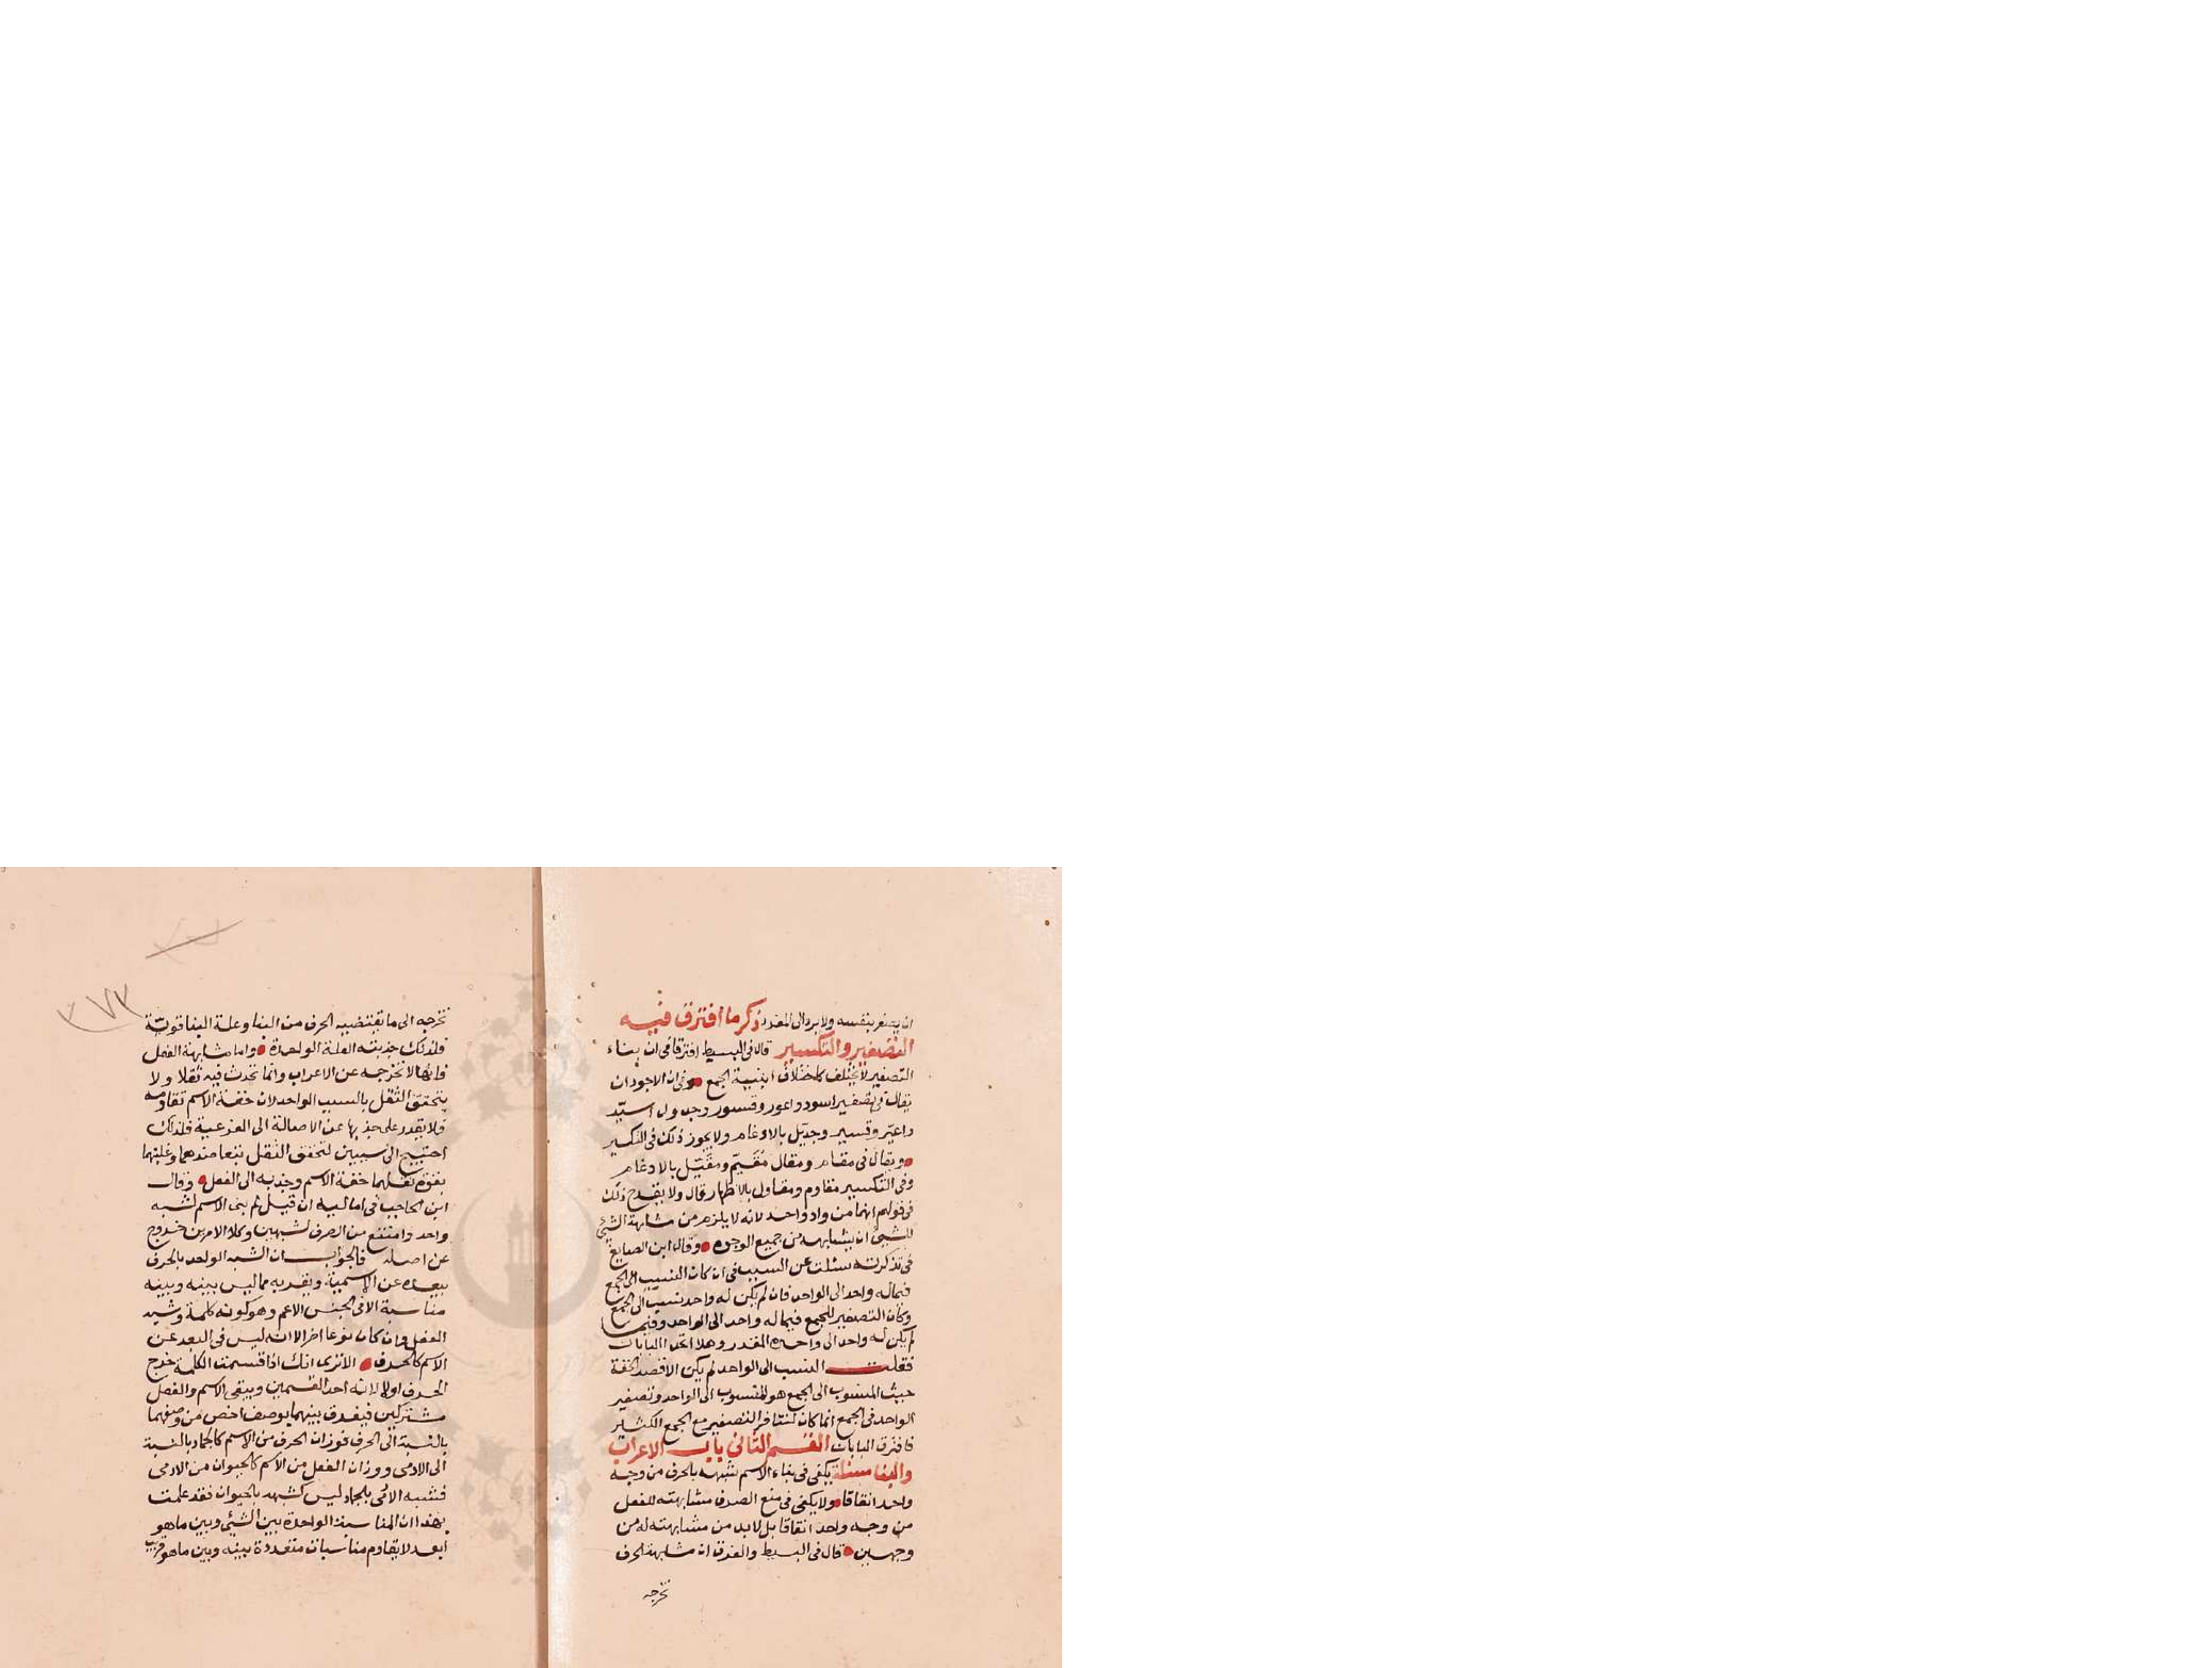 ان يصغر بنفسه ولا يرد الى المفرد ذكر ما افترق فيه
التصغير والتكسير قال فى البسيط افترقا فى ان بناء
التصغير لا يختلف كاختلاف ابنية الجمع وفى ان الاجود ان
يقال فى تصغير اسود واعور وقسور وجدول اسيّد
واعيّر وقسير وجديّل بالادغام ولا يجوز ذلك فى التكسير
ويقال فى مقام ومقال مُقَيّم ومُقَيّل بالادغام
وفى التكسير مقاوم ومقاول بالاظهار قال ولا يقدح ذلك
فى قولهم انهما من واد واحد لانه لا يلزم من مشابهة الشئ
للشئ ان يشابهه من جميع الوجوه وقال ابن الصايغ
فى تذكرته سئلت عن السبب فى ان كان النسب الى الجمع
فيما له واحد الى الواحد فان لم يكن له واحد نسب الى الجمع
وكان التصغير للجمع فيما له واحد الى الواحد وفيما
لم يكن له واحد الى واحده المقدر وهلا اتحد البابان
فقلت النسب الى الواحد لم يكن الا لقصد الخفة
حيث المنسوب الى الجمع هو المنسوب الى الواحد وتصغير
الواحد فى الجمع انما كان لتنافر التصغير مع الجمع الكثير
فافترق البابان القسم الثانى باب الاعراب
والبنا مسئلة يكفى فى بناء الاسم شبهه بالحرف من وجه
واحد اتفاقا ولا يكفى فى منع الصرف مشابهته للفعل
من وجه واحد اتفاقا بل لابد من مشابهته له من
وجهين قال فى البسيط والفرق ان مشابهة الحرف
تخرجه
تخرجه الى ما يقتضيه الحرف من البنا وعلة البنا قوية
فلذلك جذبته العلة الواحدة واما مشابهة الفعل
فانها لا تخرجه عن الاعراب وانما تحدث فيه ثقلا ولا
يتحقق الثقل بالسبب الواحد لان خفة الاسم تقاومه
فلا يقدر على جذبها عن الاصالة الى الفرعية فلذلك
احتيج الى سببين لتحقق الثقل بتعاضدهما وغلبتهما
بقوة ثقلهما خفة الاسم وجذبه الى الفعل وقال
ابن الحاجب فى اماليه ان قيل لم بنى الاسم لشبه
واحد وامتنع من الصرف لشبهين وكلا الامرين خروج
عن اصله فالجواب ان الشبه الواحد بالحرف
يبعده عن الاسمية ويقربه مما ليس بينه وبينه
مناسبة الا فى الجنس الاعم وهو كونه كلمة وشبه
الفعل وان كان نوعا اخر الا انه ليس فى البعد عن
الاسم كالحرف الا ترى انك اذا قسمت الكلمة خرج
الحرف اولا لانه احد القسمين ويبقى الاسم والفعل
مشتركين فيفرق بينهما بوصف اخص من وصفهما
بالنسبة الى الحرف فوزان الحرف من الاسم كالجماد بالنسبة
الى الادمى ووزان الفعل من الاسم كالحيوان من الادمى
فشبه الادمى بالجماد ليس كشبهه بالحيوان فقد علمت
بهذا ان المناسبة الواحدة بين الشئ وبين ما هو
ابعد لا يقاوم مناسبات متعددة بينه وبين ما هو قريب